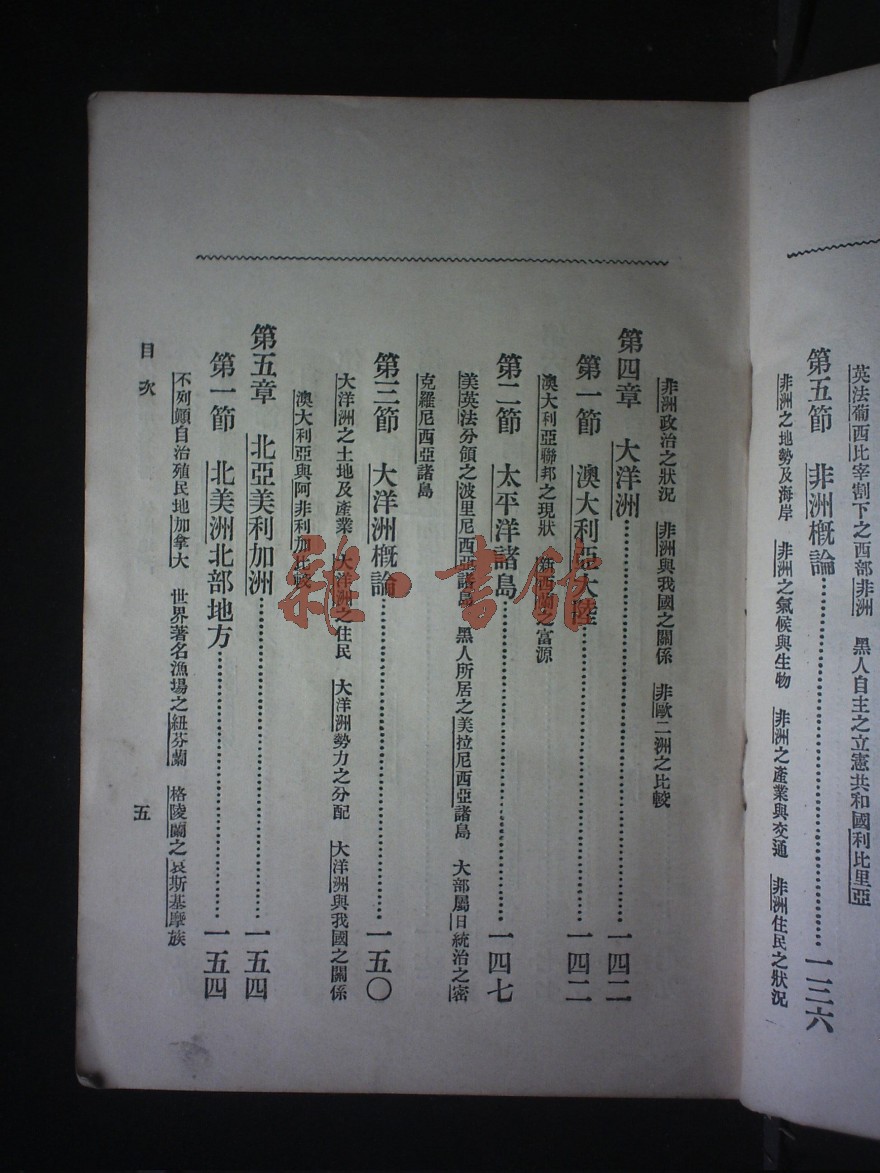 英法葡西比宰割下之西部非洲　黑人自主之立憲共和國利比里亞
第五節　非洲概論……一三六
非洲之地勢及海岸　非洲之氣候與生物　非洲之產業與交通　非洲住民之狀況
非洲政治之狀況　非洲與我國之關係　非歐二洲之比較
第四章　大洋洲……一四二
第一節　澳大利亞大陸……一四二
澳大利亞聯邦之現狀　新西蘭之富源
第二節　太平洋諸島……一四七
美英法分領之波里尼西亞諸島　黑人所居之美拉尼西亞諸島　大部屬日統治之密
克羅尼西亞諸島
第三節　大洋洲概論……一五〇
大洋洲之土地及產業　大洋洲之住民　大洋洲勢力之分配　大洋洲與我國之關係
澳大利亞與阿非利加比較
第五章　北亞美利加洲……一五四
第一節　北美洲北部地方……一五四
不列顛自治殖民地加拿大　世界著名漁場之紐芬蘭　格陵蘭之哀斯基摩族
目次
五
雜·書館